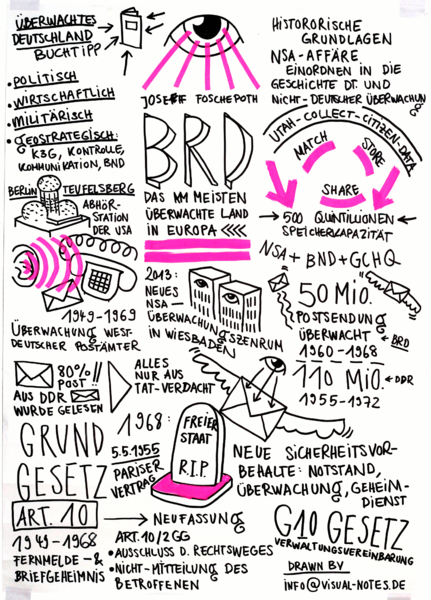 ÜBERWACHTES
DEUTSCHLAND
BUCHTIPP
• POLITISCH
• WIRTSCHAFTLICH
• MILITÄRISCH
• GEOSTRATEGISCH:
K3G, KONTROLLE,
KOMMUNIKATION, BND
BERLIN TEUFELSBERG
ABHÖR-
STATION
DER USA
1949-1969
ÜBERWACHUNG WEST-
DEUTSCHER POSTÄMTER
80%
POST!!
AUS DDR
WURDE GELESEN
ALLES
NUR AUS
TAT-VERDACHT
JOSEF FOSCHEPOTH
BRD
DAS AM MEISTEN
ÜBERWACHTE LAND
IN EUROPA <<<
2013:
NEUES
NSA-
ÜBERWACHUNGSZENRUM
IN WIESBADEN
HISTORORISCHE
GRUNDLAGEN
NSA-AFFÄRE
EINORDNEN IN DIE
GESCHICHTE DT. UND
NICHT-DEUTSCHER ÜBERWACHUNG
UTAH-COLLECT-CITIZEN-DATA
MATCH
STORE
SHARE
→ 500 QUINTILLIONEN ←
SPEICHERKAPAZITÄT
NSA + BND + GCHQ
50 MIO.
POSTSENDUNG
ÜBERWACHT
← BRD
1960-1968
110 MIO.
← DDR
1955-1972
GRUND
GESETZ
ART. 10
1949-1968
FERNMELDE- &
BRIEFGEHEIMNIS
1968:
5.5.1955
PARISER
VERTRAG
FREIER
STAAT
R.I.P.
NEUFASSUNG
ART. 10/2 GG
• AUSSCHLUSS D. RECHTSWEGES
• NICHT-MITTEILUNG DES
BETROFFENEN
NEUE SICHERHEITSVOR-
BEHALTE: NOTSTAND,
ÜBERWACHUNG, GEHEIM-
DIENST
G10 GESETZ
VERWALTUNGSVEREINBARUNG
DRAWN BY
INFO@VISUAL-NOTES.DE